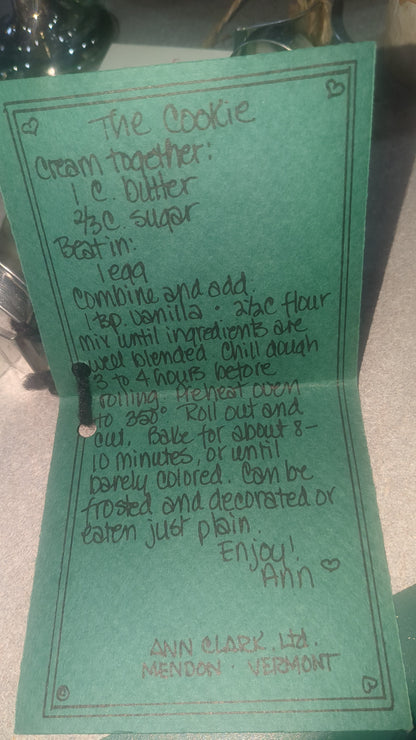 The Cookie
Cream together:
1 C. butter
2/3 C. sugar
Beat in:
1 egg
Combine and add:
1 tsp. vanilla · 2 1/2 C flour
Mix until ingredients are
well blended. Chill dough
3 to 4 hours before
rolling. Preheat oven
to 350° Roll out and
cut. Bake for about 8-
10 minutes, or until
barely colored. Can be
frosted and decorated or
eaten just plain.
Enjoy!
Ann ♡
ANN CLARK, Ltd.
MENDON · VERMONT